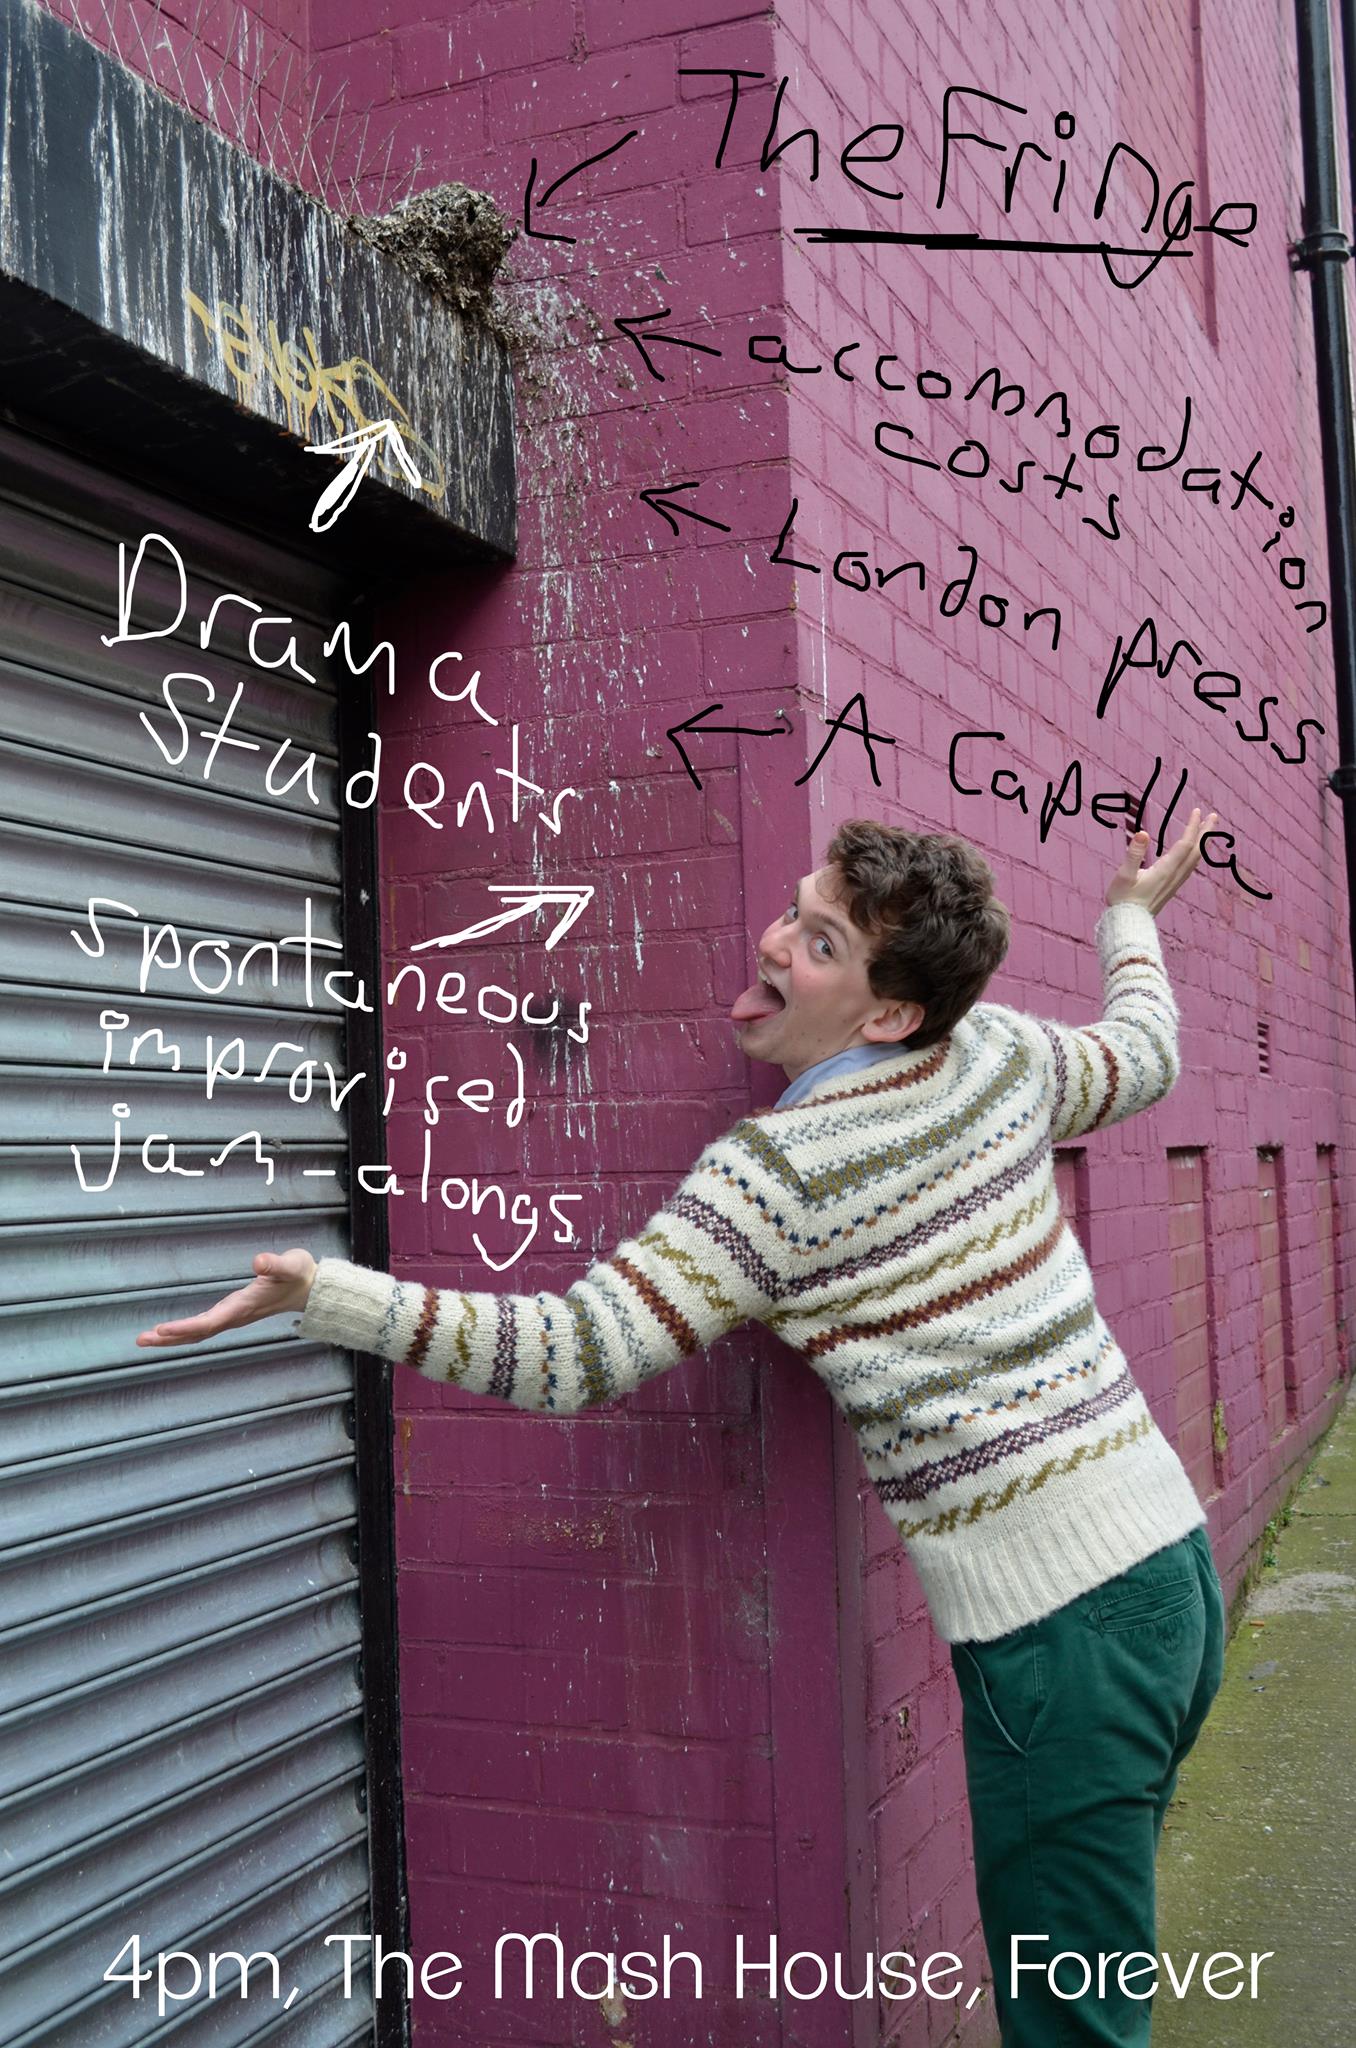 The Fringe
accommodation
costs
London press
A Capella
Drama
Students
spontaneous
improvised
jam-alongs
4pm, The Mash House, Forever